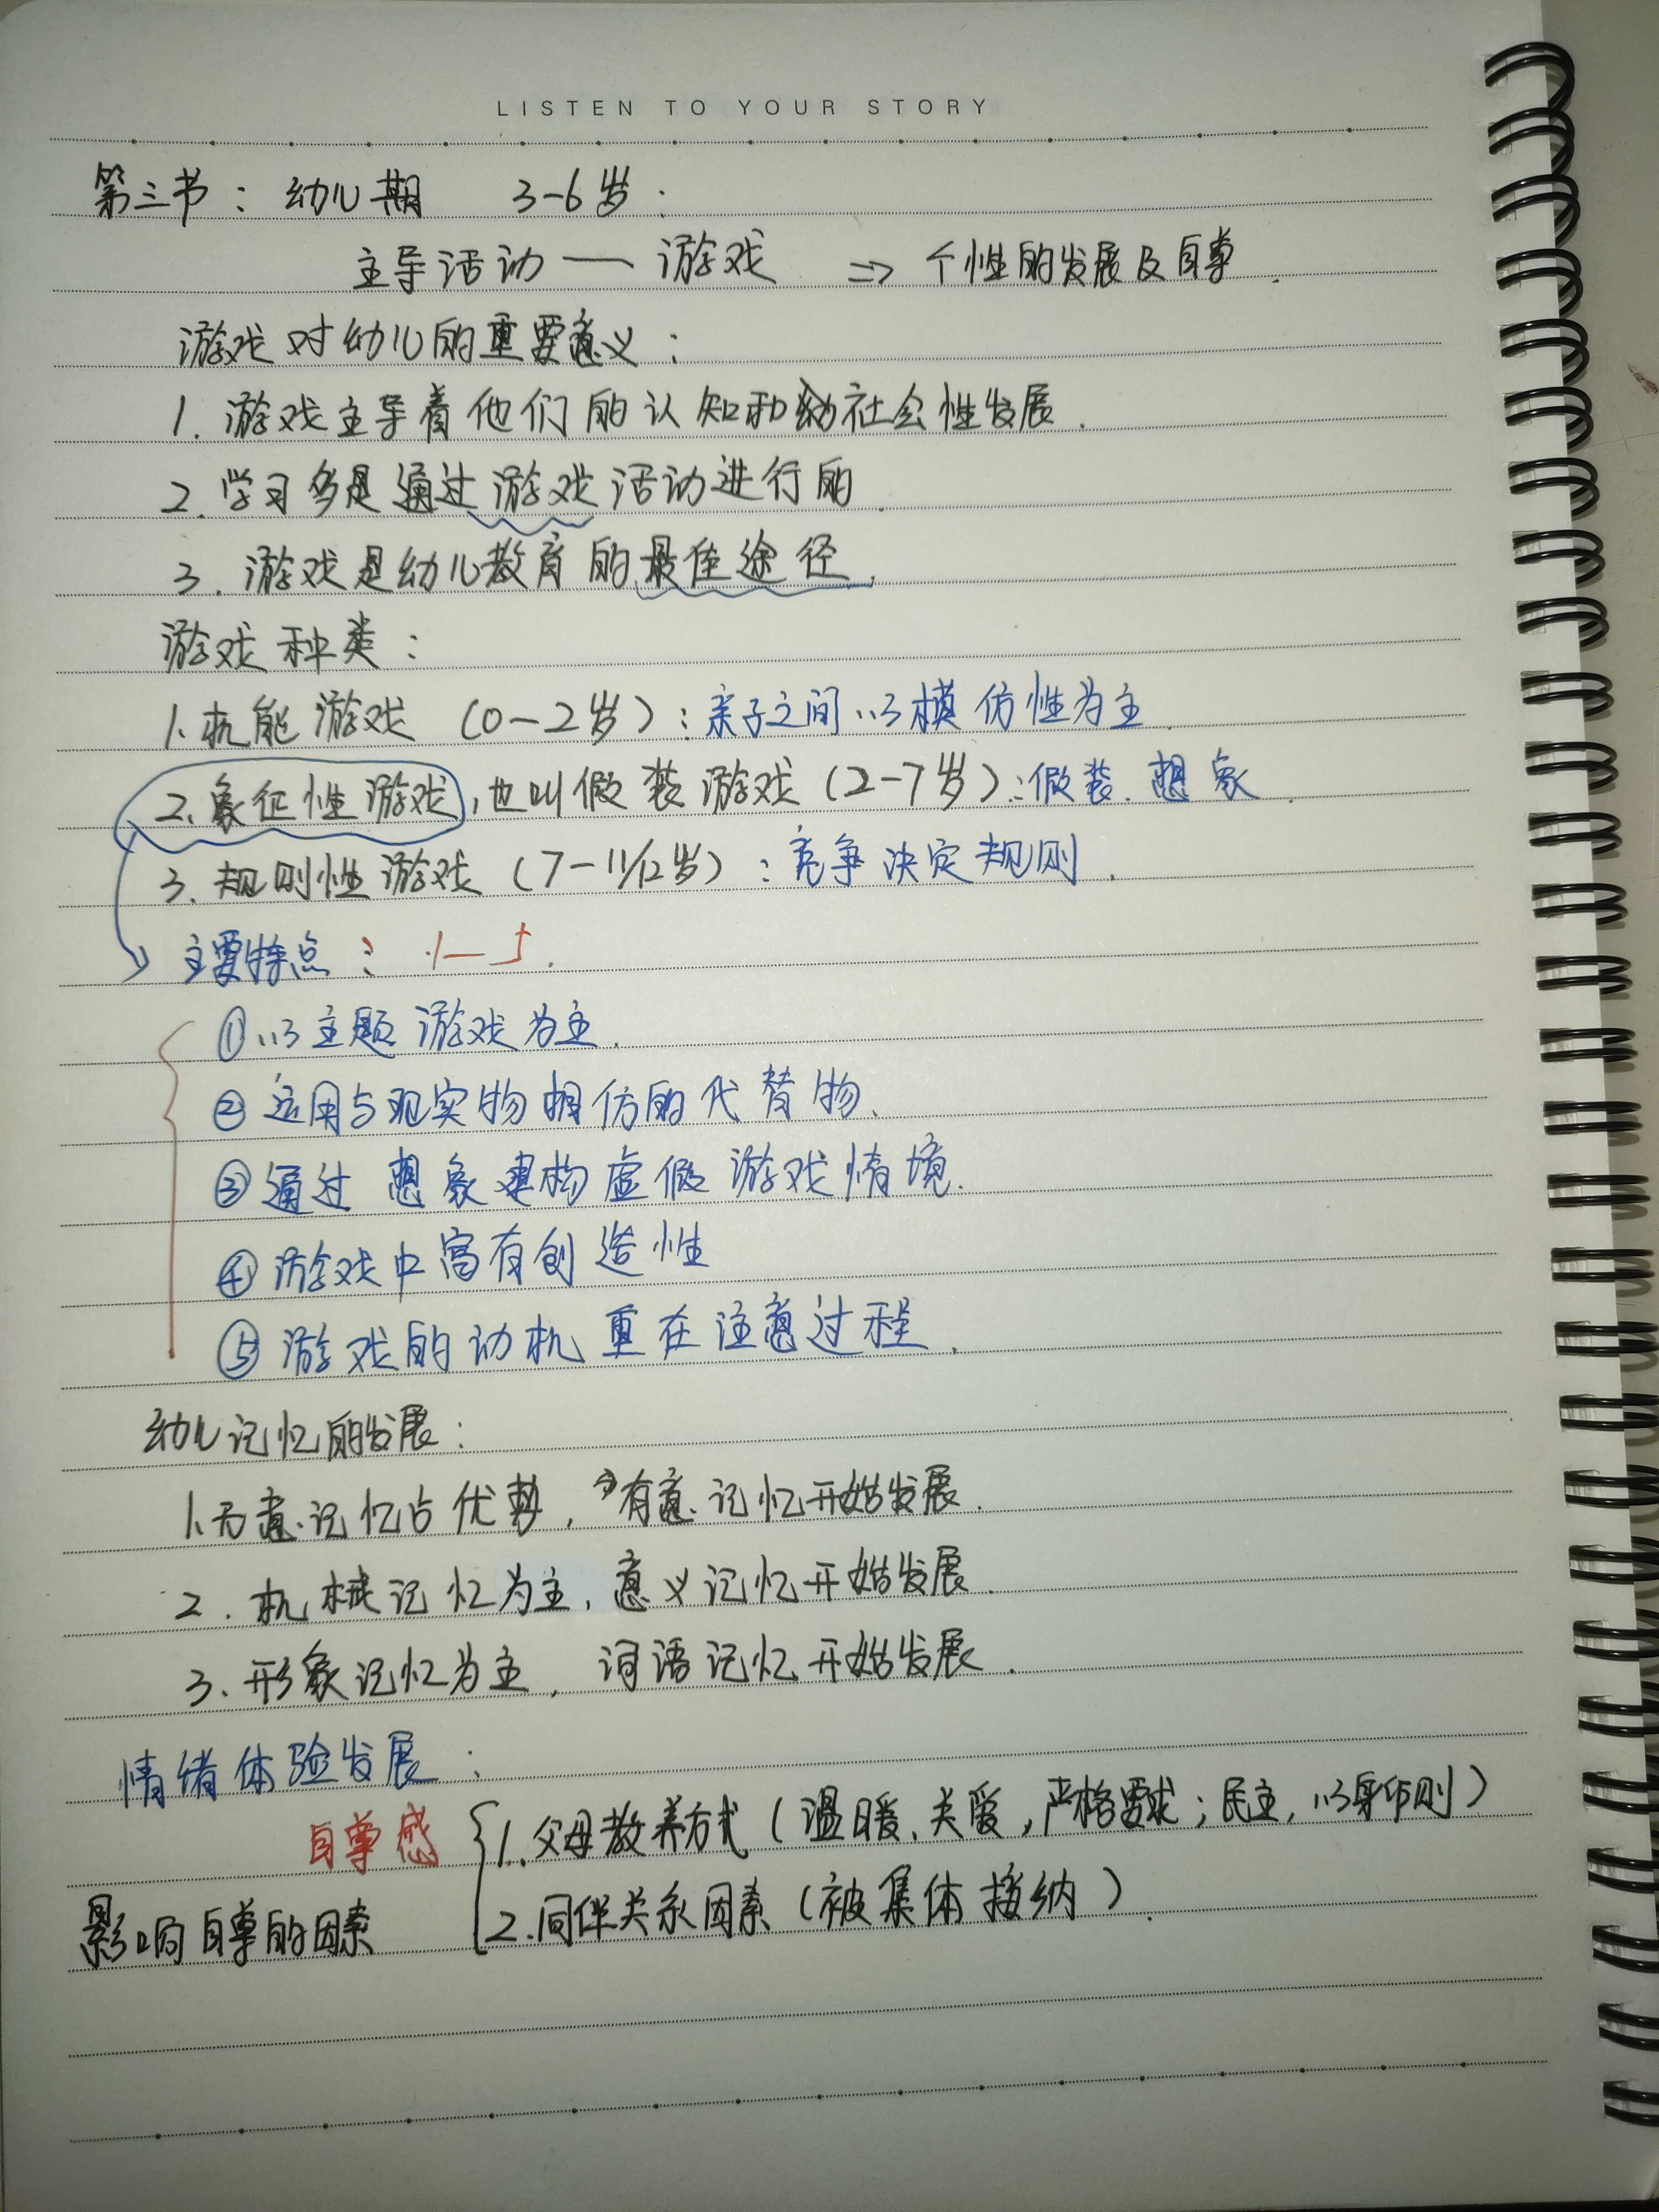 LISTEN TO YOUR STORY
第三节：幼儿期 3-6岁：
主导活动 — 游戏 ⇒ 个性的发展及自尊.
游戏对幼儿的重要意义：
1. 游戏主导着他们的认知和社会性发展.
2. 学习多是通过游戏活动进行的.
3. 游戏是幼儿教育的最佳途径.
游戏种类：
1. 机能游戏（0-2岁）：亲子之间以模仿性为主.
2. 象征性游戏，也叫假装游戏（2-7岁）：假装、想象.
3. 规则性游戏（7-11/12岁）：竞争决定规则.
主要特点：1—5.
①以主题游戏为主.
②运用与现实物相仿的代替物、
③通过想象建构虚假游戏情境.
④游戏中富有创造性
⑤游戏的动机重在注意过程.
幼儿记忆的发展：
1. 无意记忆占优势，有意记忆开始发展.
2. 机械记忆为主，意义记忆开始发展.
3. 形象记忆为主，词语记忆开始发展.
情绪体验发展：
自尊感 1. 父母教养方式（温暖、关爱，严格要求；民主，以身作则）
影响自尊的因素 2. 同伴关系因素（被集体接纳）.